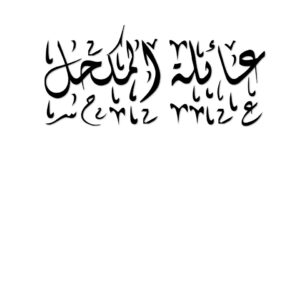 عائلة المكحل